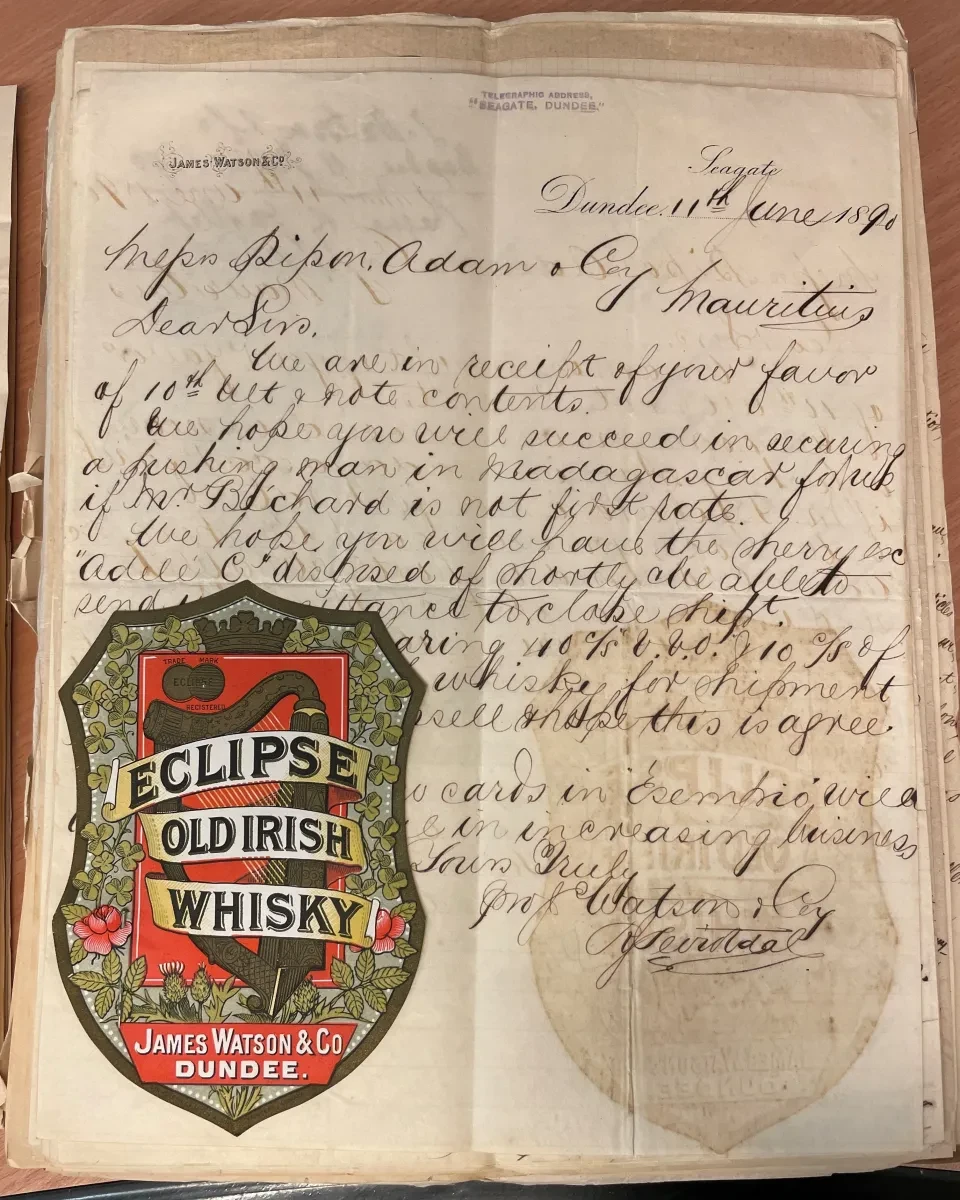 TELEGRAPHIC ADDRESS,
"SEAGATE, DUNDEE."
JAMES WATSON & Co
Seagate
Dundee. 11th June 1890
Messrs Adam & Coy
Mauritius
Dear Sirs,
We are in receipt of your favor
of 10th Ult & note contents.
We hope you will succeed in securing
a pushing man in Madagascar for us
if Mr Bechard is not first rate.
We hope you will have the sherry ex
"Adele C" disposed of shortly & be able to
send to close shipt.
10 c/s V.V.O. & 10 c/s of
whisky for shipment
& hope this is agree
cards in will
in increasing business
Yours Truly
Watson & Coy
TRADE MARK
ECLIPSE
REGISTERED
ECLIPSE
OLD IRISH
WHISKY
JAMES WATSON & Co
DUNDEE.